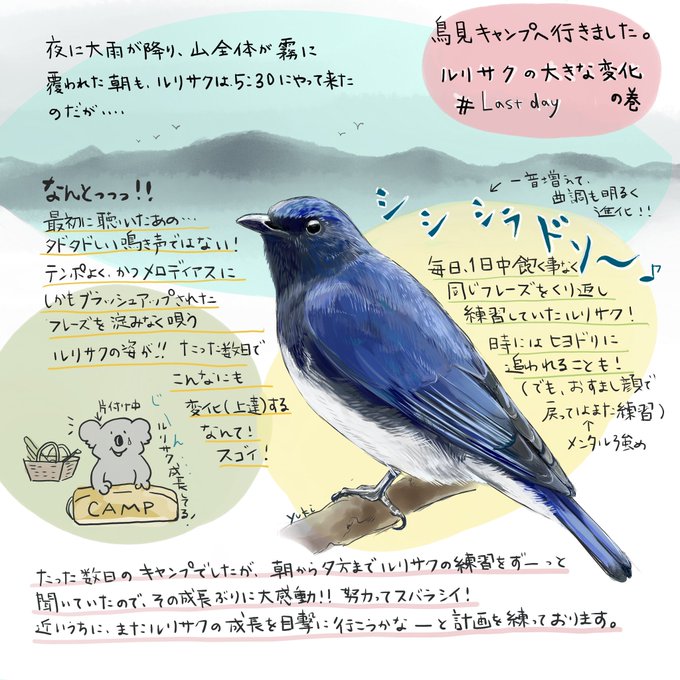 鳥見キャンプへ行きました。
ルリサクの大きな変化
の巻
# Last day
夜に大雨が降り、山全体が霧に
覆われた朝も、ルリサクは5:30にやって来た
のだが‥‥
なんとっっっ!!
最初に聴いたあの…
タドタドしい鳴き声ではない!
テンポよく、かつメロディアスに
しかもブラッシュアップされた
フレーズを淀みなく唄う
ルリサクの姿が!! たった数日で
こんなにも
変化(上達)する
なんて!
スゴイ!
一音増えて、
曲調も明るく
進化!!
シシシラドソ〜♪
毎日、1日中飽く事なく
同じフレーズをくり返し
練習していたルリサク!
時にはヒヨドリに
追われることも!
(でも、おすまし顔で
戻ってはまた練習)
↑
メンタル強め
片付け中
じーん
ルリサク成長してる!
CAMP
yuki
たった数日のキャンプでしたが、朝から夕方までルリサクの練習をずーっと
聞いていたので、その成長ぶりに大感動!! 努力ってスバラシイ!
近いうちに、またルリサクの成長を目撃に行こうかな―と計画を練っております。